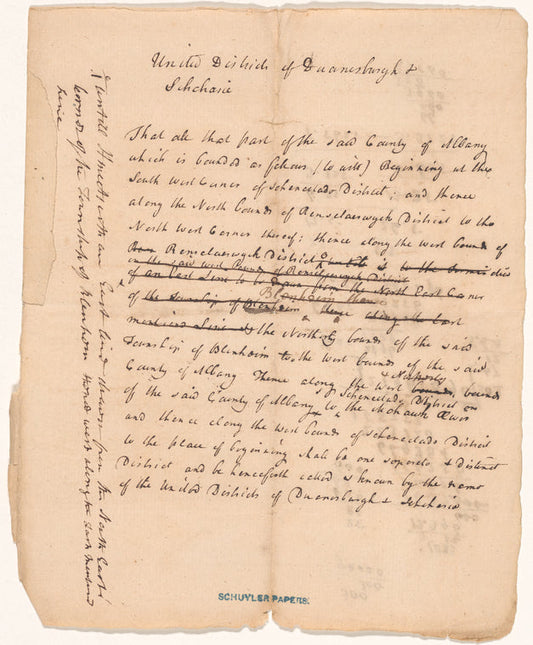 United Districts of Duanesburgh &
Schoharie
That all that part of the said County of Albany
which is bounded as follows (to wit) Beginning at the
South West Corner of Schenectady District; and thence
along the North bounds of Renselaerwyck District to the
North West Corner thereof; thence along the West bounds of
Renselaerwyck District
in the said west bounds of Renselaerwyck District
of an East Line to be drawn from the North East Corner
Blenheim thence
of the Township of Blenheim thence along the last
mentioned Line & the Northerly bounds of the said
Township of Blenheim to the West bounds of the said
County of Albany Thence along the West & Northerly bounds
of the said County of Albany to Schenectady District on the Mohawk River
and thence along the West bounds of Schenectady District
to the place of beginning shall be one seperate & distinct
District and be henceforth called & known by the name
of the United Districts of Duanesburgh & Schoharie
untill it meets with an East Line drawn from the North East
bounds of the Township of Blenheim thence west along the last mentioned
Line
SCHUYLER PAPERS.